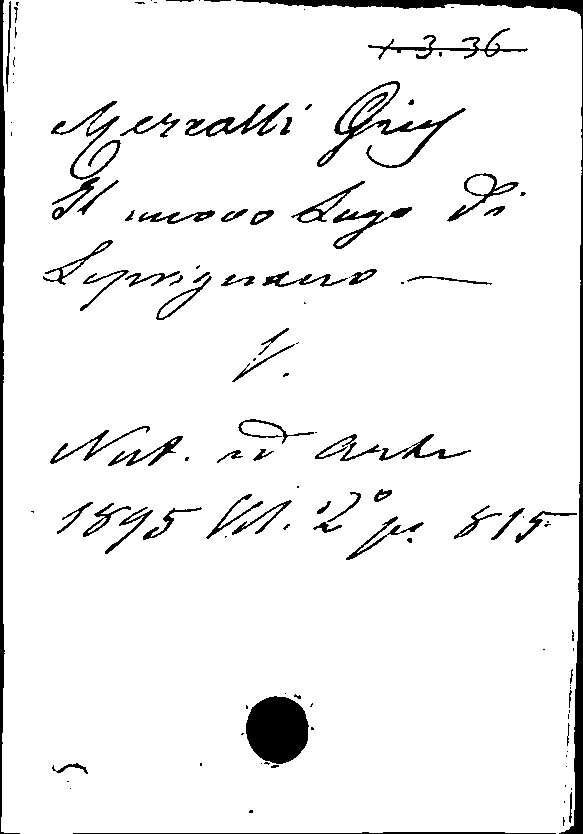 1.3.36
Mercalli Gius
Il nuovo Lago di
Leprignano —
V.
Nat. ed Arte
1895 Vol. 2° p. 815